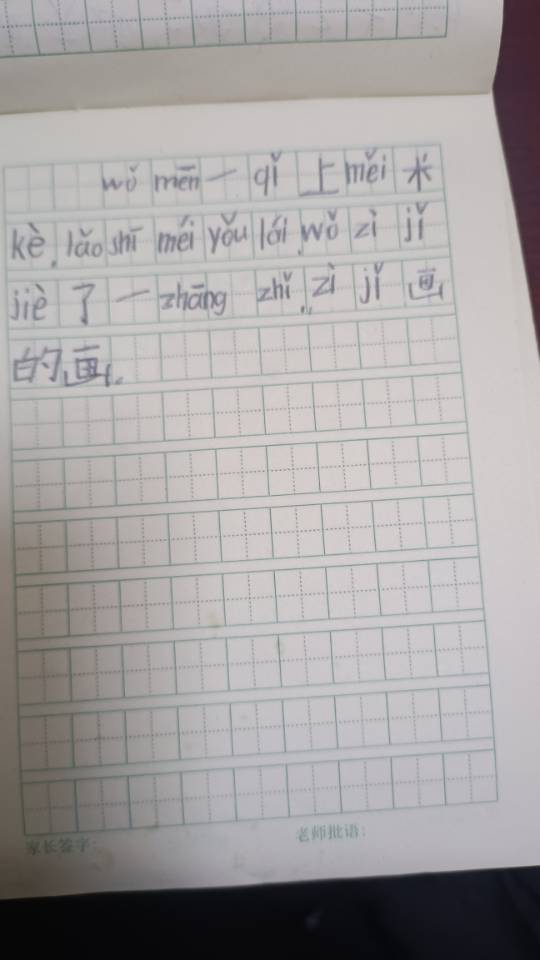 wǒ mēn一qǐ上měi术
kè,lǎo shī méi yǒu lái,wǒ zì jǐ
jiè了一zhāng zhǐ,zì jǐ画
的画。
家长签字:
老师批语: